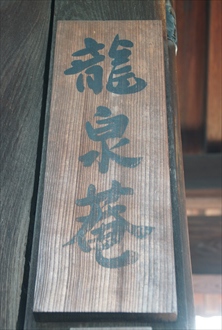 龍泉菴